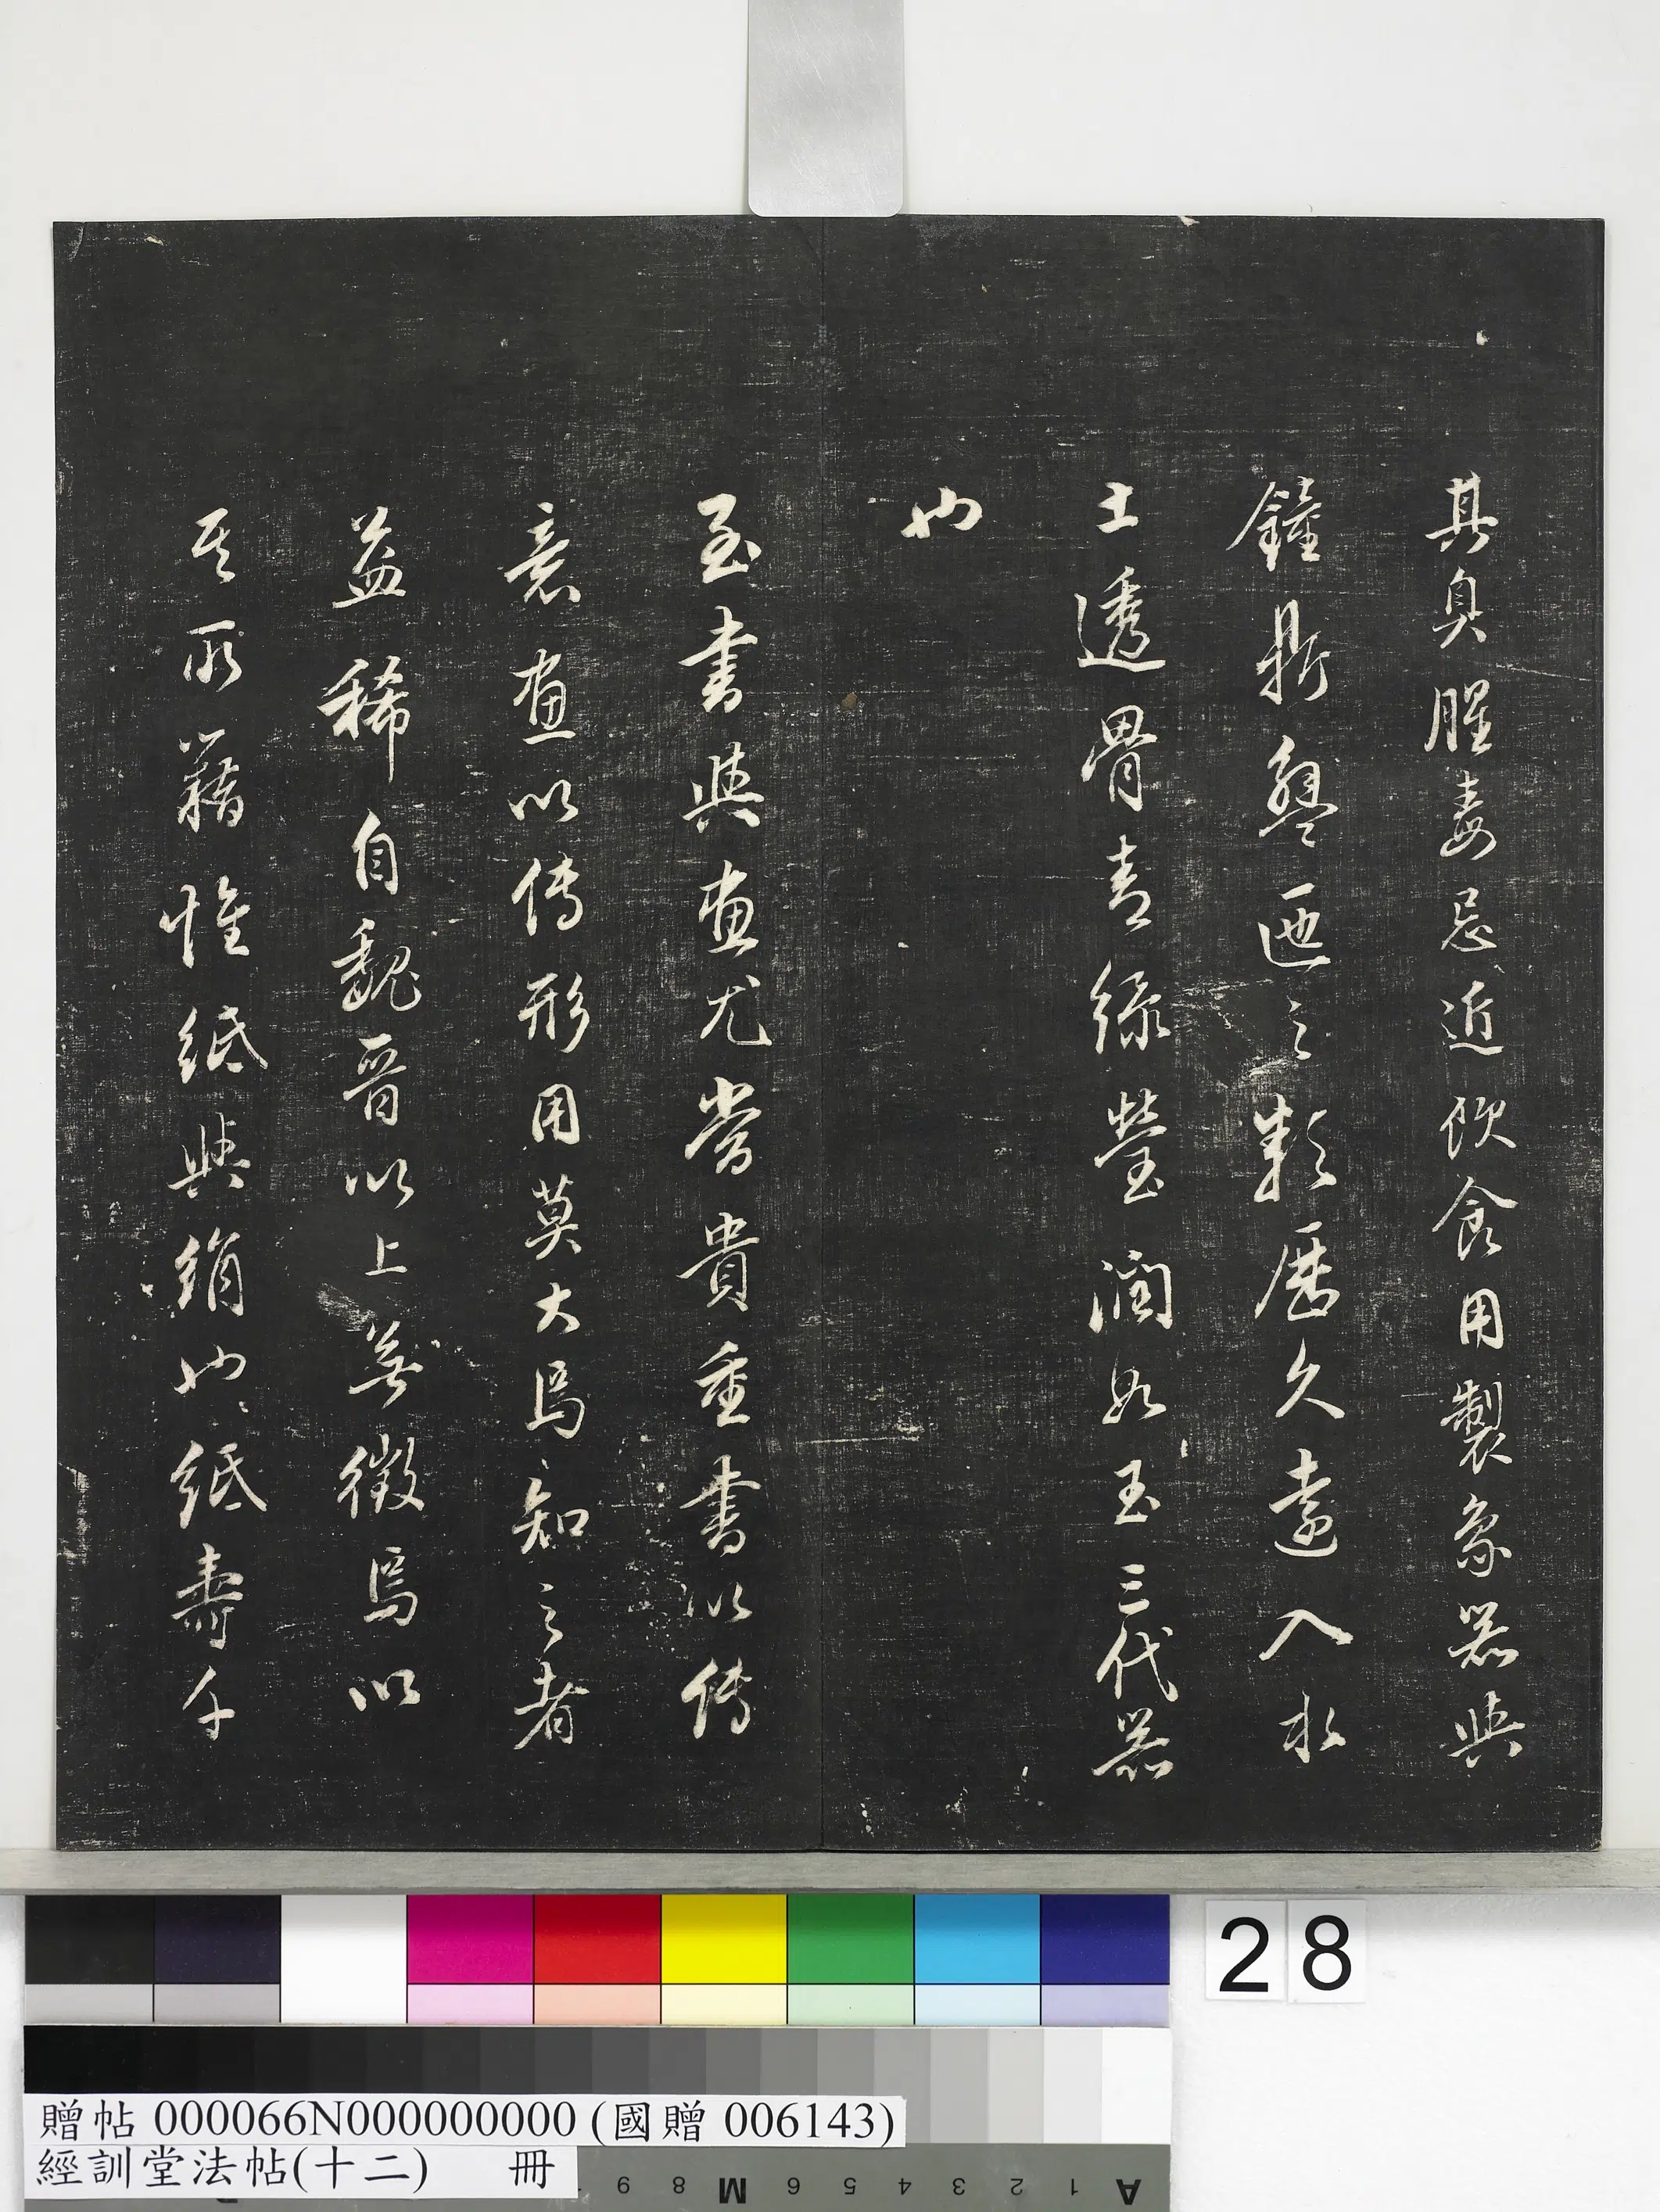 其臭腥毒忌近飲食用製象器與
鐘鼎盤匜之類歷久遠入水
土透骨青綠瑩潤如玉三代器
也
至書與畫尤當貴重書以傳
意畫以傳形用莫大焉知之者
益稀自魏晉以上無徵焉以
其所藉惟紙與絹也紙壽千
28
贈帖 000066N000000000 (國贈 006143)
經訓堂法帖(十二) 冊
9 8 M 6 5 4 3 2 1 A